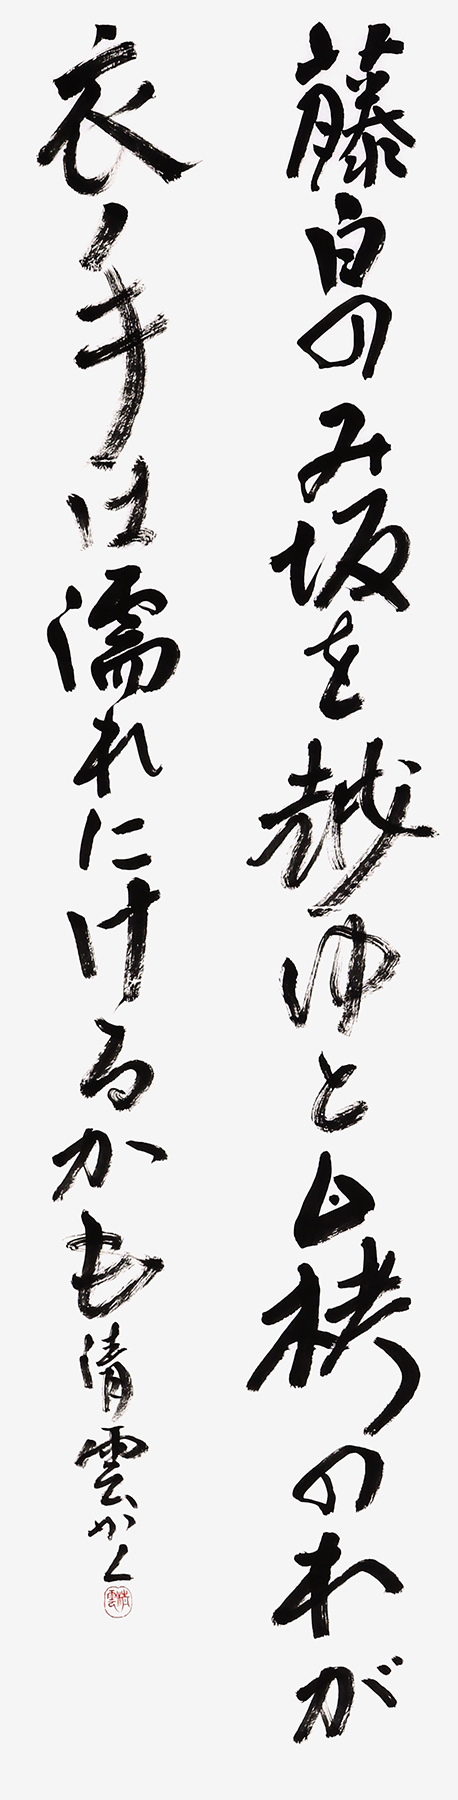 藤白のみ坂を越ゆと白栲のわが
衣手は濡れにけるかも 清雲かく
清雲